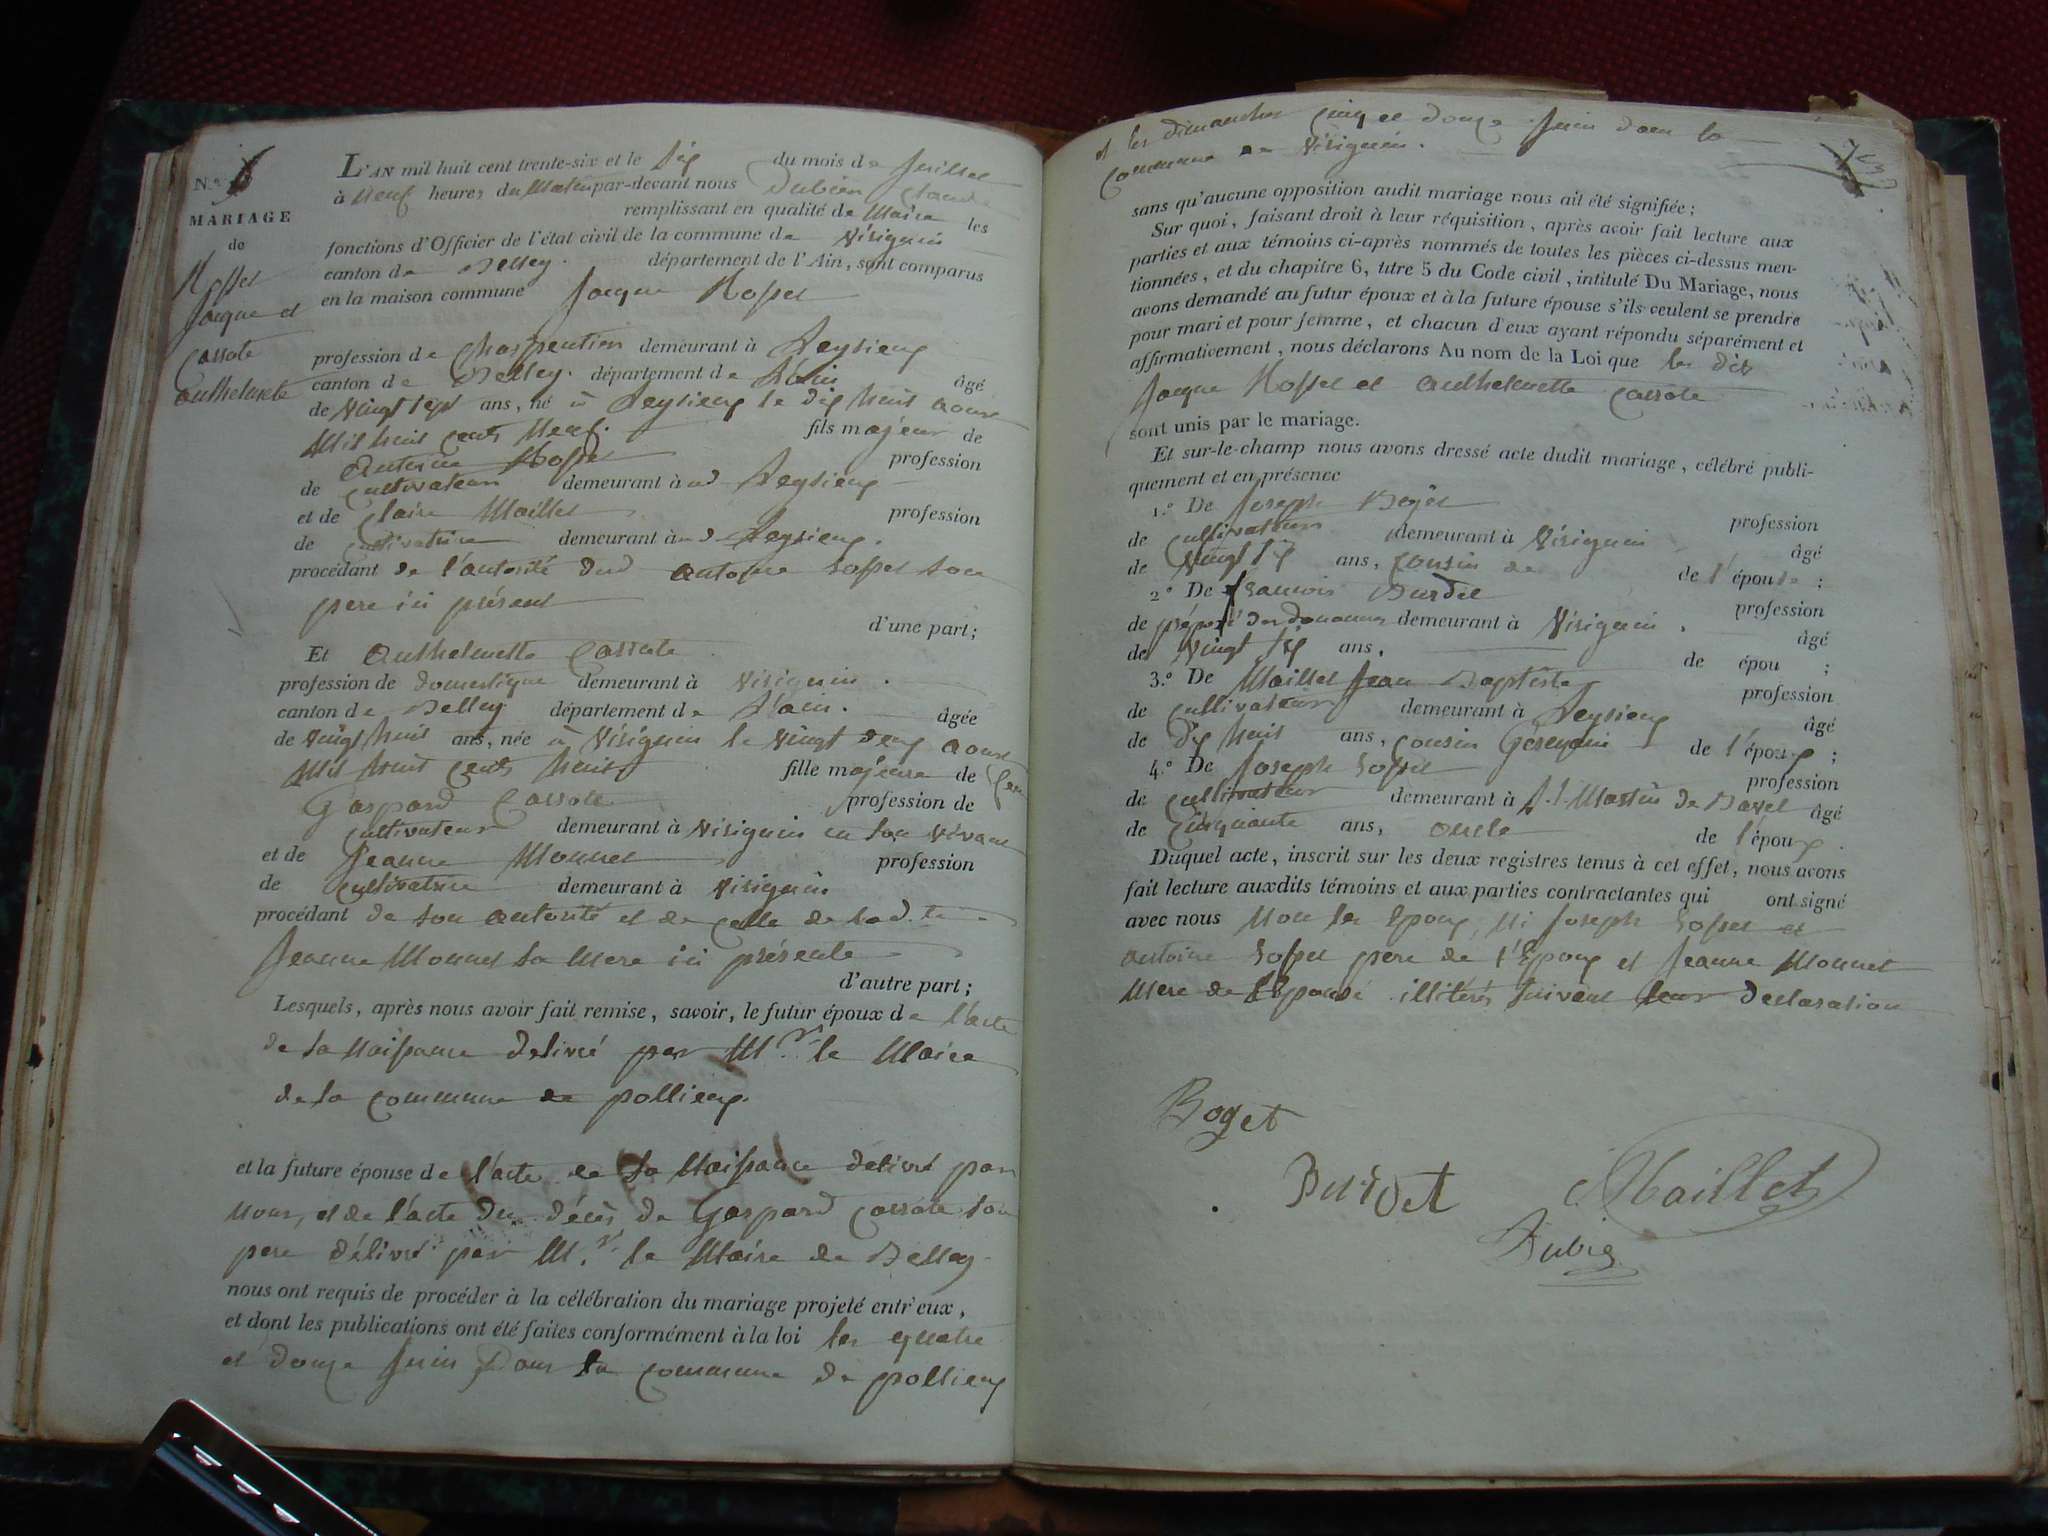 N.º 6
MARIAGE
de
Rosset
Jacque et
Cassote
anthelmette
L'AN mil huit cent trente-six et le six du mois de Juillet
à Neuf heures du Matin par-devant nous Dubien Claude
remplissant en qualité de Maire les
fonctions d'Officier de l'état civil de la commune de Virignin
canton de Belley. département de l'Ain, sont comparus
en la maison commune Jacque Rosset
profession de Charpentier demeurant à Leysieux
canton de Belley. département de L'ain âgé
de vingt sept ans, né à Leysieux le dix huit aoust
Mil huit cents Neuf. fils majeur de
Antoine Rosset profession
de Cultivateur demeurant à Leysieux
et de Claire Maillet profession
de Cultivatrice demeurant à Leysieux.
procédant de l'autorité dud antoine Rosset son
pere ici présent
d'une part;
Et Anthelmette Cassote
profession de domestique demeurant à Virignin.
canton de Belley département de L'ain. âgée
de vingt huit ans, née à Virignin le vingt deux aoust
Mil huit cents huit fille majeure de
Gaspard Cassote profession de
Cultivateur demeurant à Virignin en son vivant
et de Jeanne Monnet profession
de Cultivatrice demeurant à Virignin
procédant de son autorité et de celle de sad.te
Jeanne Monnet sa Mere ici présente
d'autre part;
Lesquels, après nous avoir fait remise, savoir, le futur époux de l'acte
de sa Naissance delivré par M.r le Maire
de la commune de pollieux.
et la future épouse de l'acte de sa Naissance délivré par
Nous, et de l'acte du décès de Gaspard Cassote son
pere délivré par M.r le Maire de Belley
nous ont requis de procéder à la célébration du mariage projeté entr'eux,
et dont les publications ont été faites conformément à la loi les quatre
et douze Juin Dans la commune de pollieux
et les dimanches Cinq et douze Juin dans la
Commune de Virignin.
sans qu'aucune opposition audit mariage nous ait été signifiée;
Sur quoi, faisant droit à leur réquisition, après avoir fait lecture aux
parties et aux témoins ci-après nommés de toutes les pièces ci-dessus men-
tionnées, et du chapitre 6, titre 5 du Code civil, intitulé Du Mariage, nous
avons demandé au futur époux et à la future épouse s'ils veulent se prendre
pour mari et pour femme, et chacun d'eux ayant répondu séparément et
affirmativement, nous déclarons Au nom de la Loi que les dits
Jacque Rosset et Anthelmette Cassote
sont unis par le mariage.
Et sur-le-champ nous avons dressé acte dudit mariage, célébré publi-
quement et en présence
1.º De Joseph Boget profession
de Cultivateur demeurant à Virignin âgé
de vingt six ans, Cousin de de l'épouse;
2.º De francois Burdet profession
de préposé des douanes demeurant à Virignin. âgé
de vingt six ans, de épou ;
3.º De Maillet Jean Baptiste profession
de Cultivateur demeurant à Leysieux âgé
de dix huit ans, Cousin Germain de l'époux;
4.º De Joseph Rosset profession
de Cultivateur demeurant à S.t Martin de Bavel âgé
de Cinquante ans, oncle de l'époux.
Duquel acte, inscrit sur les deux registres tenus à cet effet, nous avons
fait lecture auxdits témoins et aux parties contractantes qui ont signé
avec nous Non les Epoux, Ni Joseph Rosset et
antoine Rosset pere de l'Epoux et Jeanne Monnet
Mere de l'Epouse illitérés suivant leur declaration
Boget
Burdet
Maillet
Dubien